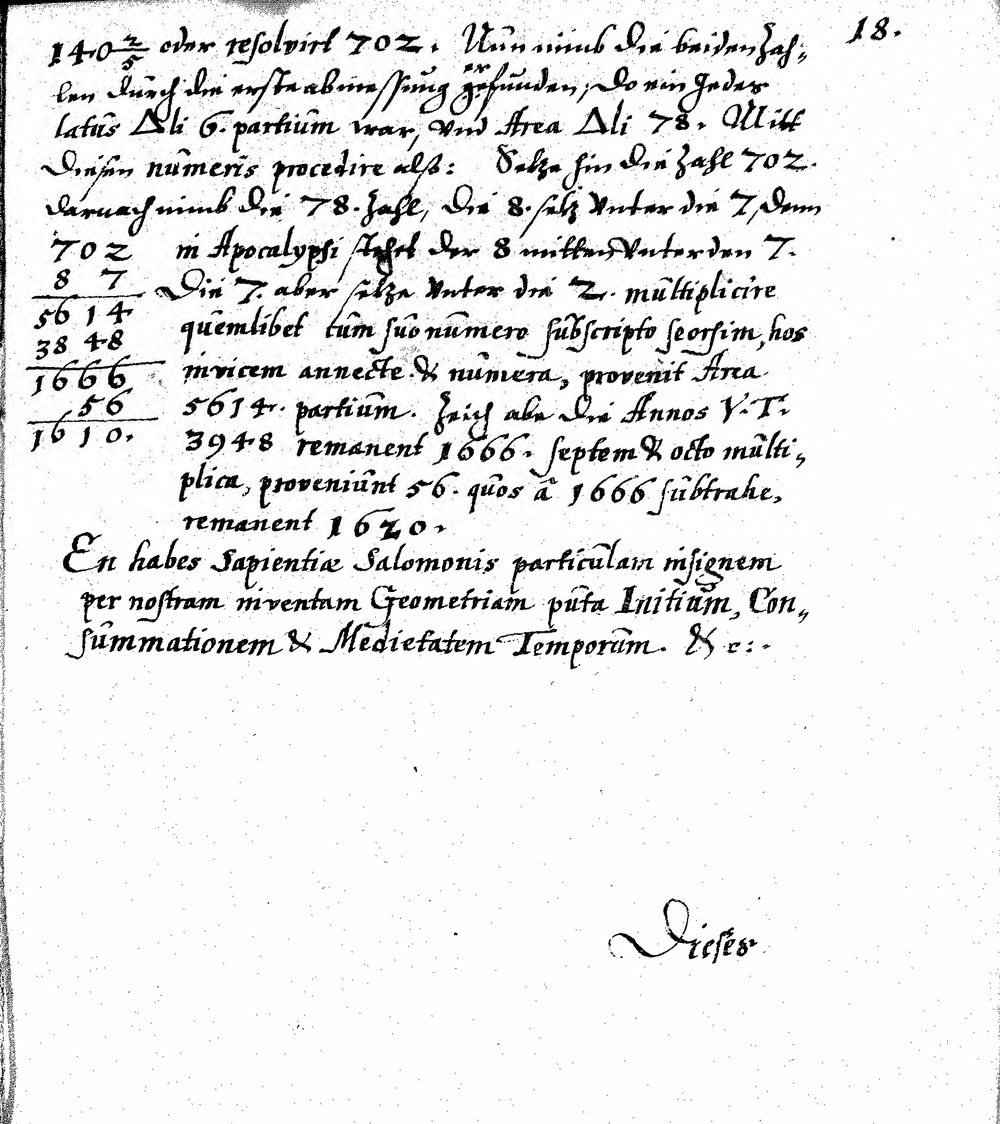 18.
140 2/5 oder resolvirt 702. Nun nimb die beiden Zah-
len durch die erste abmessung gefunden, Do ein Jeder
er
latus Δli 6. partium war, vnd Area Δli 78. Mitt
diesen numeris procedire also: Setze hin die Zahl 702.
darnach nimb die 78. Zahl, die 8. setz vnter die 7, denn
702 in Apocalypsi stehet der 8 mitten vnter den 7.
8 7 Die 7. aber setze vnter die 2. multiplicire
5614 quemlibet cum suo numero subscripto seorsim, hos
3848 invicem annecte & numera, provenit Area
1666 5614. partium. Zeich abe die Annos V. T.
56 3948 remanent 1666. septem & octo multi-
1610. plica, proveniunt 56. quos a 1666 subtrahe,
remanent 1620.
En habes Sapientiæ Salomonis particulam insignem
per nostram inventam Geometriam puta Initium, Con-
summationem & Medietatem Temporum. & c:.
Dieses